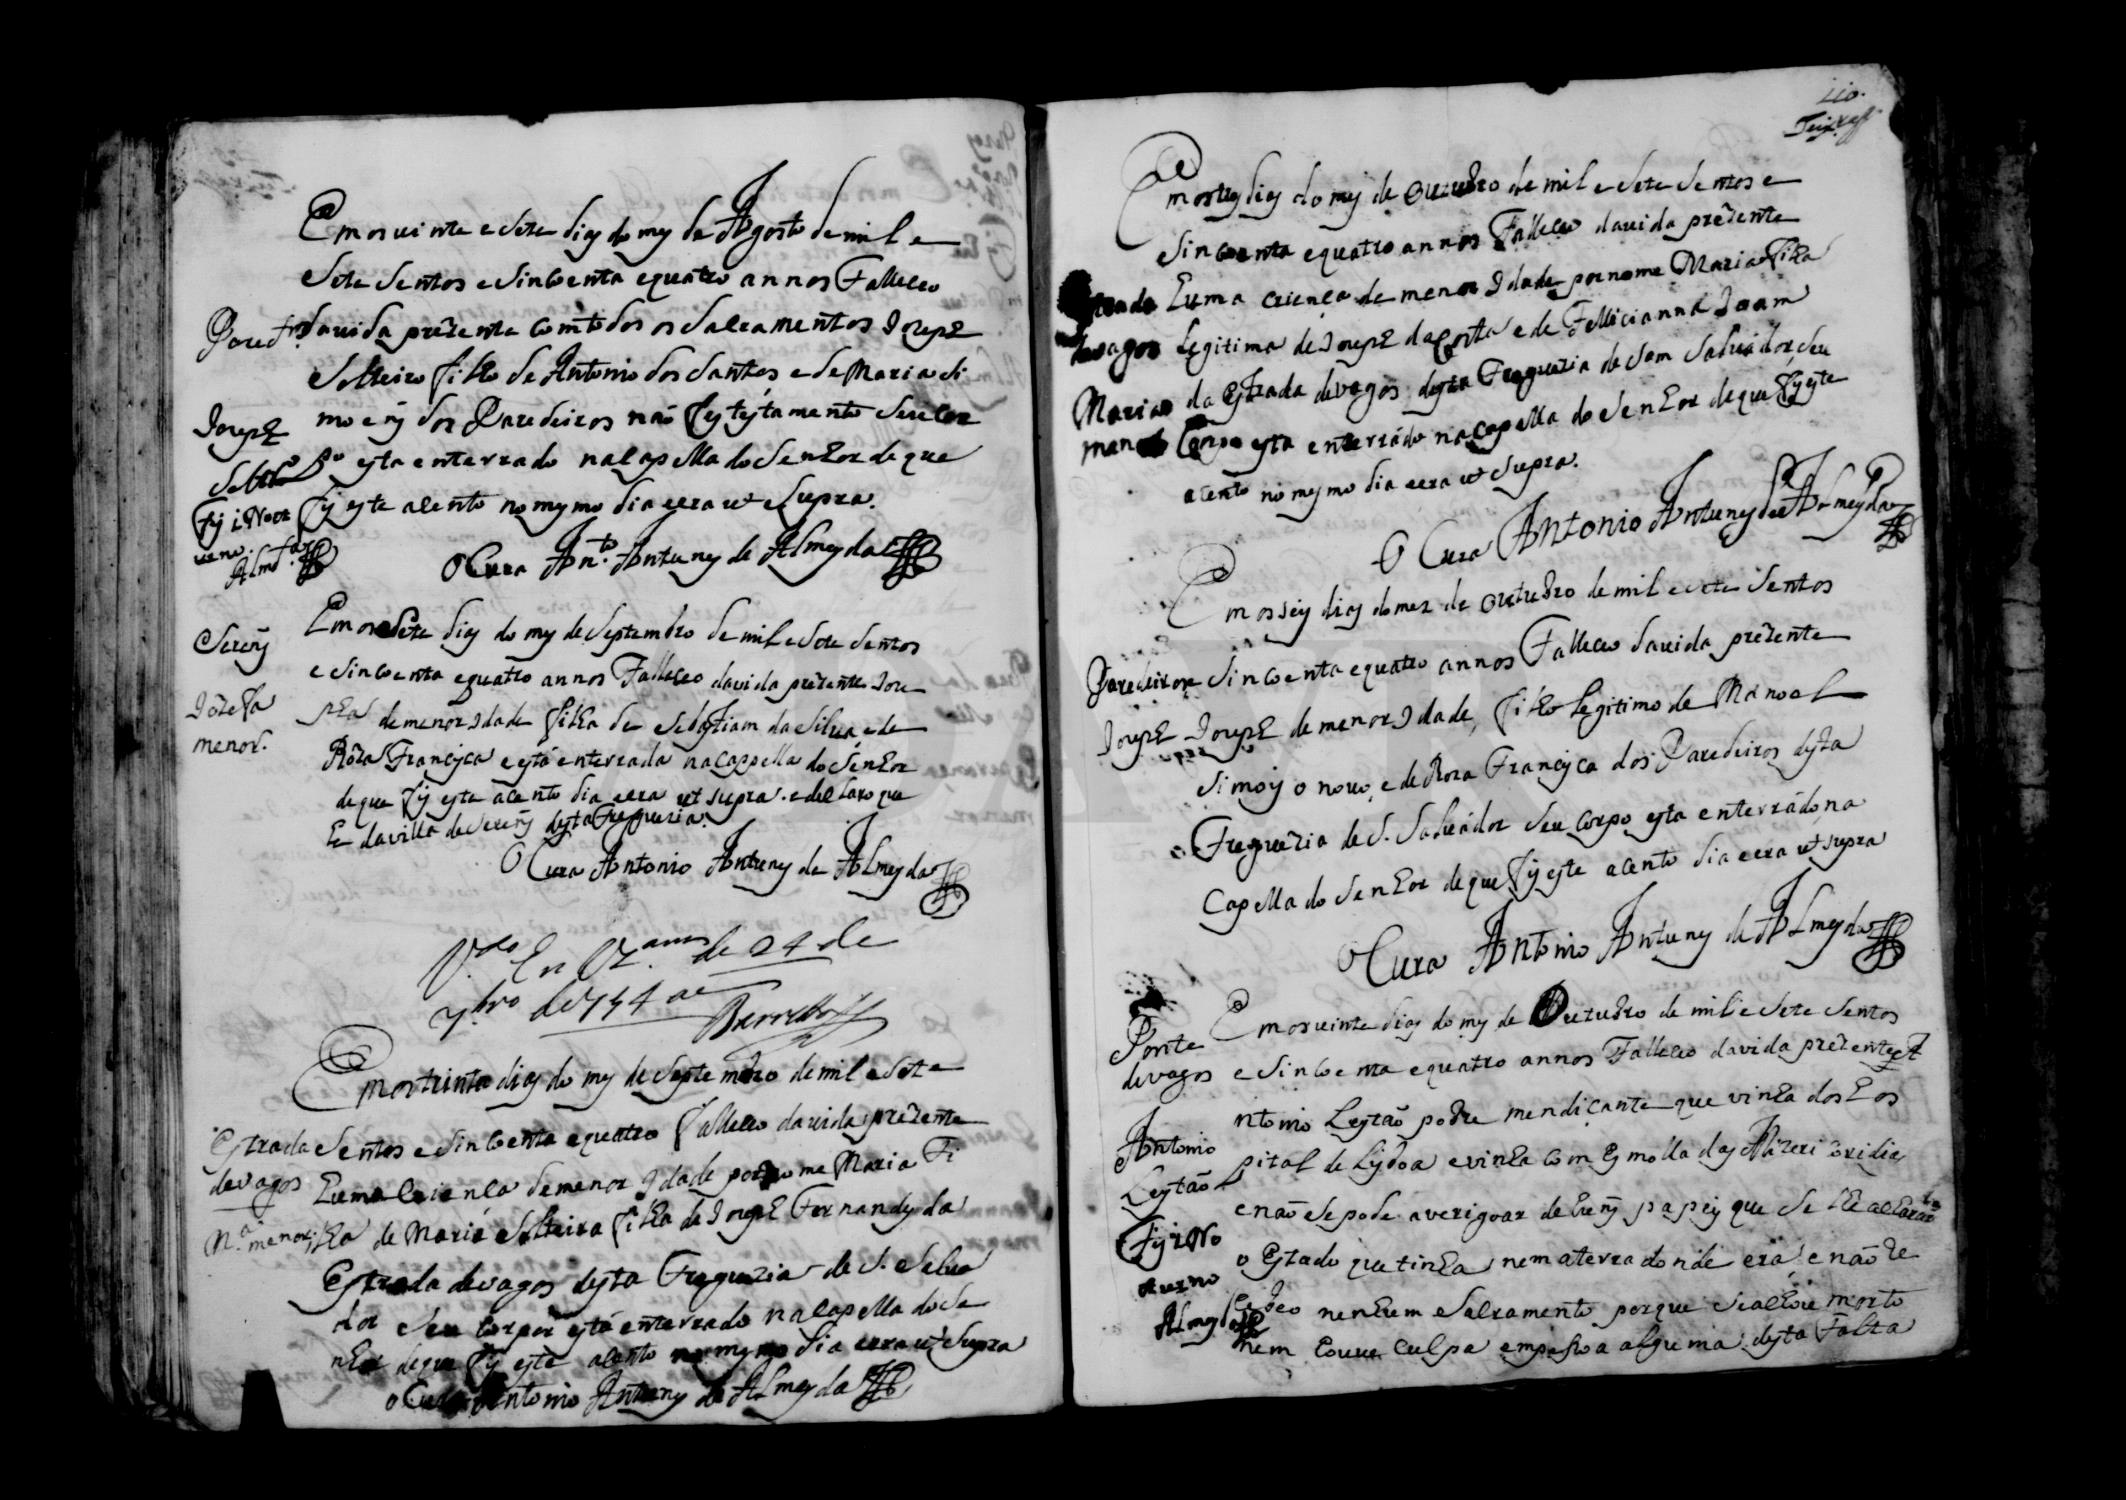 Emos uinte e sete dias do mes de Agosto de mil e
sete sentos e sincoenta e quatro annos Falleceo
da uida prezente com todos os sacramentos Joseph
solteiro filho de Antonio dos santos e de Maria si
mois dos Paredeiros não fes testamento seu cor
po esta enterrado na capella do senhor de que
fis este acento no mesmo dia e era ut supra.
O Cura Ant.º Antunes de Almeyda
Joseph
Solt.ro
Fis i Nott
urno.
Almd.ª
Emos sete dias do mes de Septembro de mil e sete sentos
e sincoenta e quatro annos Falleceo da uida prezente Joze
pha de menor Idade filha de Sebastiam da Silua, e de
Roza Francisca e está enterrada na cappella do Senhor
de que fis este acento dia e era ut supra. e declaro que
he da villa de Serem desta Freguezia.
O Cura Antonio Antunes de Almeyda
Serem
Jozefa
menor.
V.to En Vz.am de 24 de
7.bro de 754
Barretto
Emos trinta dias do mes de Septembro de mil e sete
sentos e sincoenta e quatro falleceo da uida prezente
huma criença de menor Idade por nome Maria Fi
lha de Maria solteira filha de Joseph Fernandes da
Estrada de vagos desta Freguezia de S. Salua
dor seu corpo está enterrado na capella do se
nhor de que fis este acento no mesmo dia e era ut supra
o Cura Antonio Antunes de Almeyda
Estrada
de vagos
M.ª menor.
110.
Emos tres dias do mes de outubro de mil e sete sentos e
sincoenta e quatro annos Falleceo da uida prezente
huma criença de menor Idade por nome Maria Filha
Legitima de Joseph da Costa e de Felliciana Joam
da Estrada de vagos desta Freguezia de Sam Saluádor, seu
Corpo esta enterrádo na capella do senhor de que fis este
acento no mesmo dia e era ut supra.
O Cura Antonio Antunes de Almeyda
de vagos
Maria
Emos seis dias do mez de outubro de mil e sete sentos
sincoenta e quatro annos Falleceo da uida prezente
Joseph de menor Idade, filho Legitimo de Manoel
simois o nouo, e de Roza Francisca dos Paredeiros desta
Freguezia de S. Saluádor seu corpo esta enterrádo na
Capella do senhor de que fis este acento dia e era ut supra
O Cura Antonio Antunes de Almeyda
Paredeiros
Joseph
Emos uinte dias do mes de Outubro de mil e sete sentos
e sincoenta e quatro annos Falleceo da vida prezente A
ntonio Leytaõ pobre mendicante que vinha dos hos
pital de Lisboa e vinha com esmolla das Mizericordias
e naõ se pode averigoar de huns papeis que se lhe acharaõ
o Estado que tinha nem a terra donde era, e naõ re
cebeo nenhum sacramento porque se achou morto
nem houue culpa em pessoa alguma desta Falta
Ponte
de vagos
Antonio
Leytaõ
Fis i No
turno
Almeyda